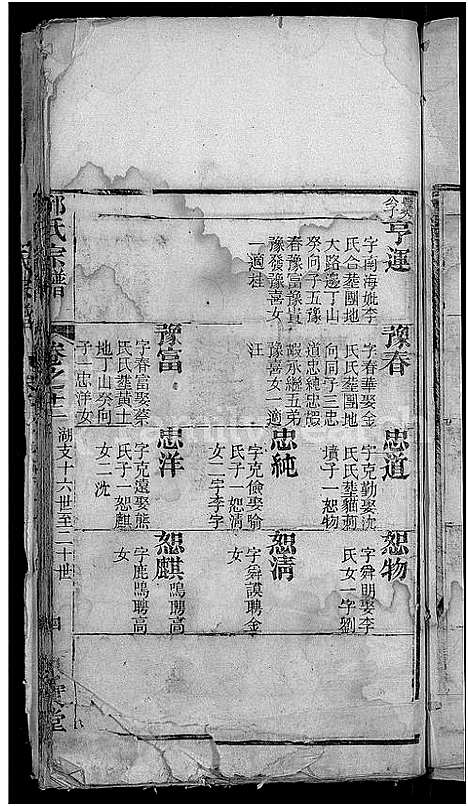 亨運
字南海妣李
氏合塟團地
大路邊丁山
癸向子五豫
春豫富豫貴
豫發豫喜女
一適桂
豫春
字春華娶金
氏氏塟團地
向同子三忠
道忠純忠
承繼五弟
豫喜女一適
汪
忠道
字克勤娶沈
氏氏塟貓
墳子一恕物
恕物
字舜明娶李
氏女一字劉
忠純
字克儉娶喻
氏子一恕清
女二一字李
恕清
字舜謨聘金
女
豫富
字春富娶蔡
氏氏塟黃土
地丁山癸向
子一忠洋女
忠洋
字克遠娶熊
氏子一恕麒
女二沈
恕麒
字鹿鳴聘高
女
氏宗譜
卷之十二
湖支十六世至二十世
四
堂